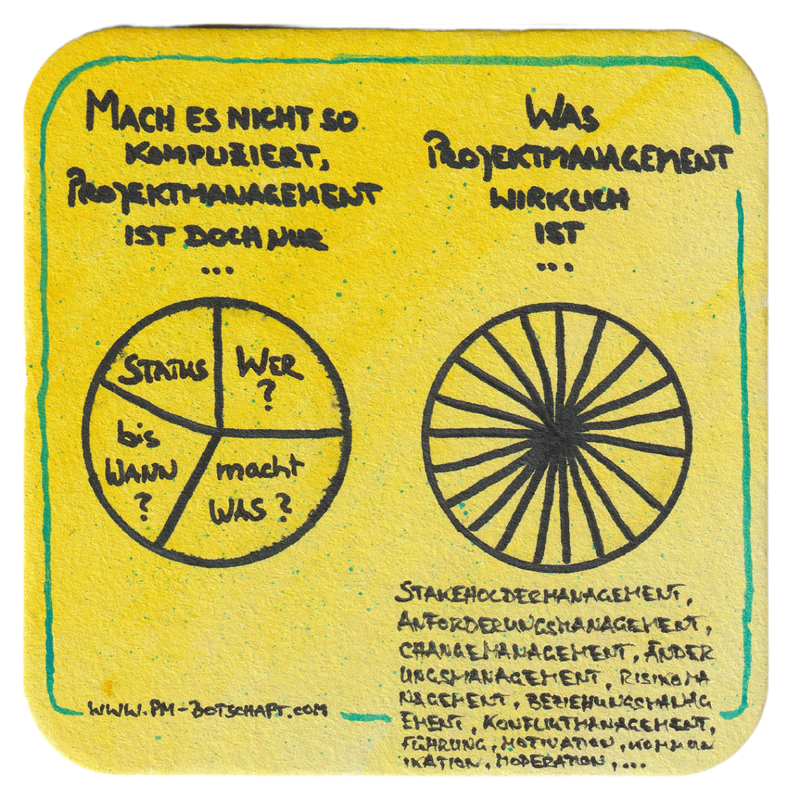 MACH ES NICHT SO
KOMPLIZIERT,
PROJEKTMANAGEMENT
IST DOCH NUR
...
STATUS
WER
?
bis
WANN
?
macht
WAS?
WAS
PROJEKTMANAGEMENT
WIRKLICH
IST
...
STAKEHOLDERMANAGEMENT,
ANFORDERUNGSMANAGEMENT,
CHANGEMANAGEMENT, ÄNDER
UNGSMANAGEMENT, RISIKOMA
NAGEMENT, BEZIEHUNGSMANAG
EMENT, KONFLIKTMANAGEMENT,
FÜHRUNG, MOTIVATION, KOMMUN
IKATION, MODERATION, ...
WWW.PM-BOTSCHAFT.COM